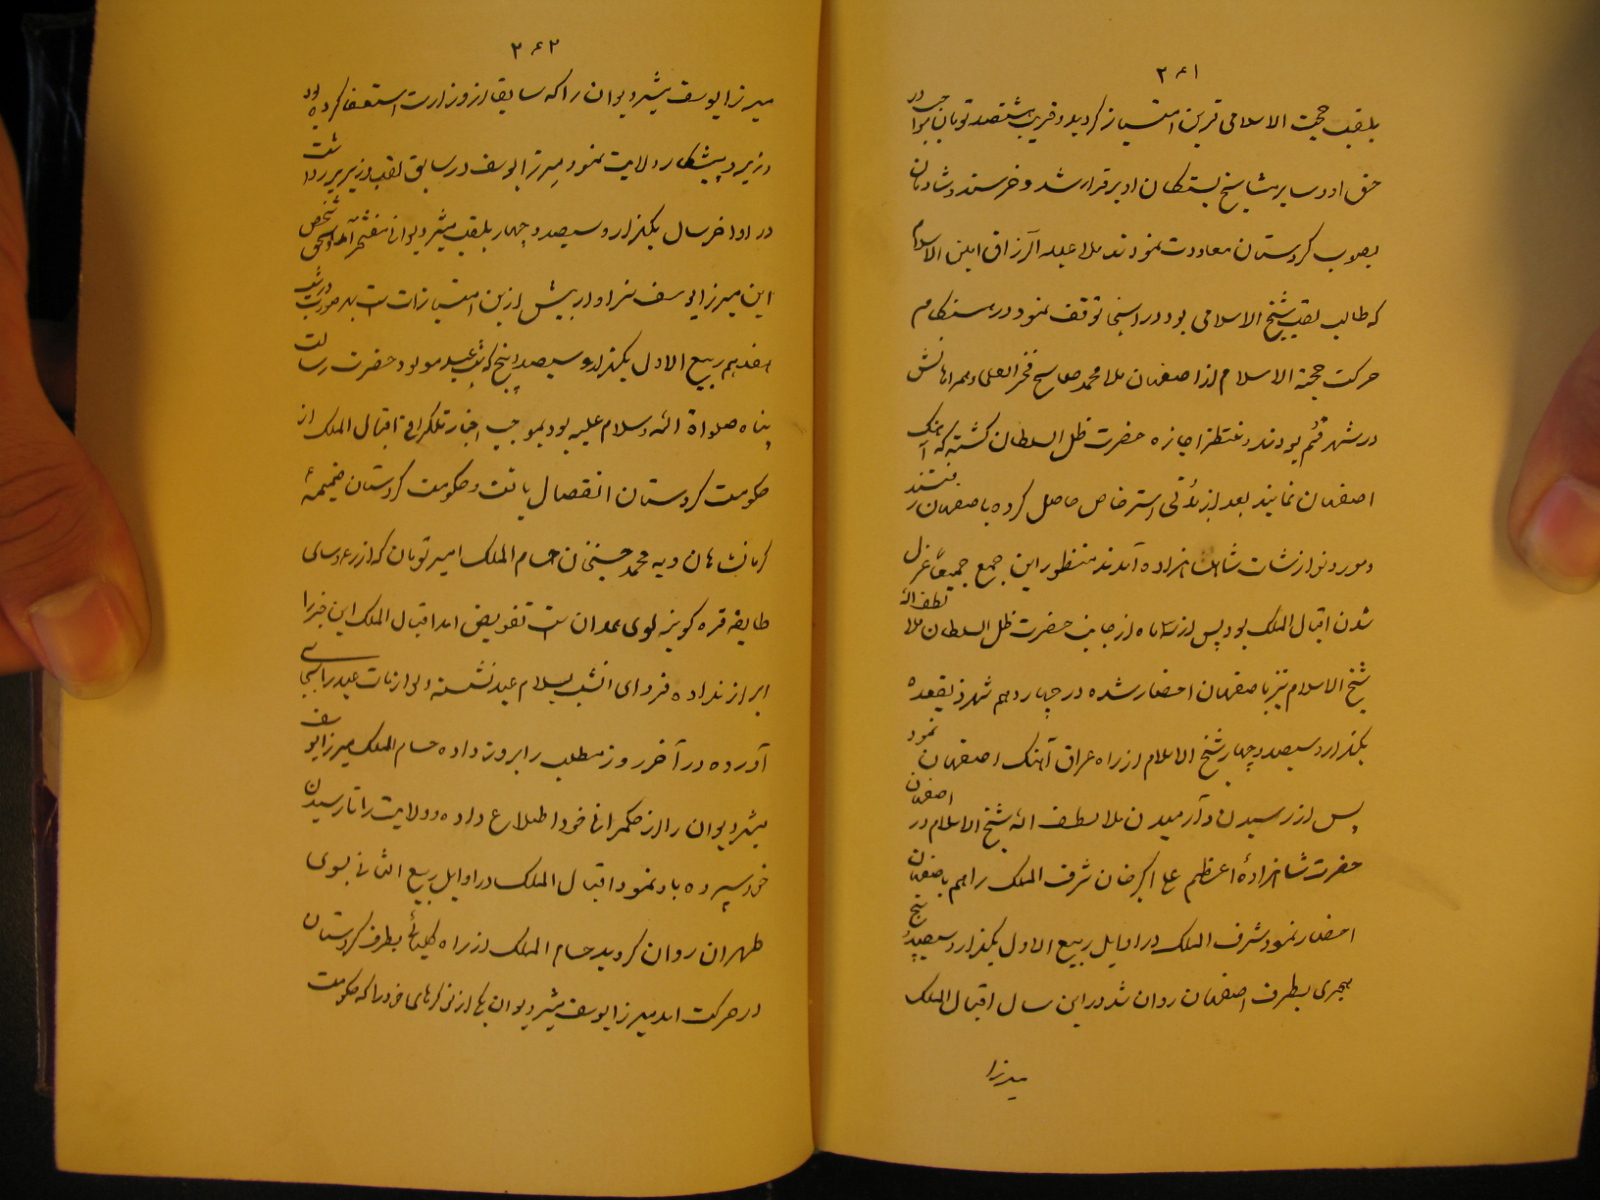 ۲۶۱
بلقب حجت الاسلامی قرین امتیاز گردید و قریب هشتصد تومان مواجب در
حق او و سایر مشایخ بستگان او برقرار شد و خرسند و شادمان
بصوب کردستان معاودت نمودند ملا عبد الرزاق امین الاسلام
که طالب لقب شیخ الاسلامی بود در اینجا توقف نمود در هنگام
حرکت حجة الاسلام از اصفهان ملا محمد صالح فخر العلما و همراهانش
در شهر قم بودند و منتظر اجازه حضرت ظل السلطان گشته که آهنک
اصفهان نمایند بعد از مدتی استرخاص حاصل کرده باصفهان رفتند
و مورد نوازشات شاهنزاده آمدند منظور این جمع جمیعا عزل
شدن اقبال الملک بود پس از سه ماه از جانب حضرت ظل السلطان ملا لطف الله
شیخ الاسلام نیز باصفهان احضار شده در چهاردهم شهر ذیقعده
یکهزار و سیصد و چهار شیخ الاسلام از راه عراق آهنک اصفهان نمود
پس از رسیدن و آرمیدن ملا لطف الله شیخ الاسلام در اصفهان
حضرت شاهزادهٔ اعظم علی اکبر خان شرف الملک را هم باصفهان
احضار نمود شرف الملک در اوایل ربیع الاول یکهزار و سیصد و پنج
هجری بطرف اصفهان روان شد در این سال اقبال الملک
میرزا
۲۶۲
میرزا یوسف مشیر دیوان را که سابقا از وزارت استعفا کرده بود
وزیر و پیشکار ولایت نمود و میرزا یوسف در سابق لقب وزیری داشت
در اواخر سال یکهزار و سیصد و چهار بلقب مشیر دیوانی مفتخر آمد و الحق شخص
این میرزا یوسف سزاوار بیش ازین امتیازات است بهر صورت در شب
هفدهم ربیع الاول یکهزار و سیصد و پنج که شب عید مولود حضرت رسالت
پناه صلواة الله و سلام علیه بود بموجب اخبار تلگرافی اقبال الملک از
حکومت کردستان انفصال یافت و حکومت کردستان ضمیمهٔ
کرمانشاهان و به محمد حسینخان حسام الملک امیر تومان که از رؤسای
طایفه قره کوزلوی همدان است تفویض آمد اقبال الملک این خبر را
ابراز نداده فردای آنشب بسلام عید نشسته و لوازمات عید را بجای
آورده در آخر روز مطلب را بروز داده حسام الملک میرزا یوسف
مشیر دیوان را از حکمرانی خود اطلاع داده و ولایت را تا رسیدن
خود سپرده باو نمود اقبال الملک در اوایل ربیع الثانی بسوی
طهران روان گردید حسام الملک از راه کلیائی بطرف کردستان
در حرکت آمد میرزا یوسف مشیر دیوان یکی از نوکرهای خود را که حکومت